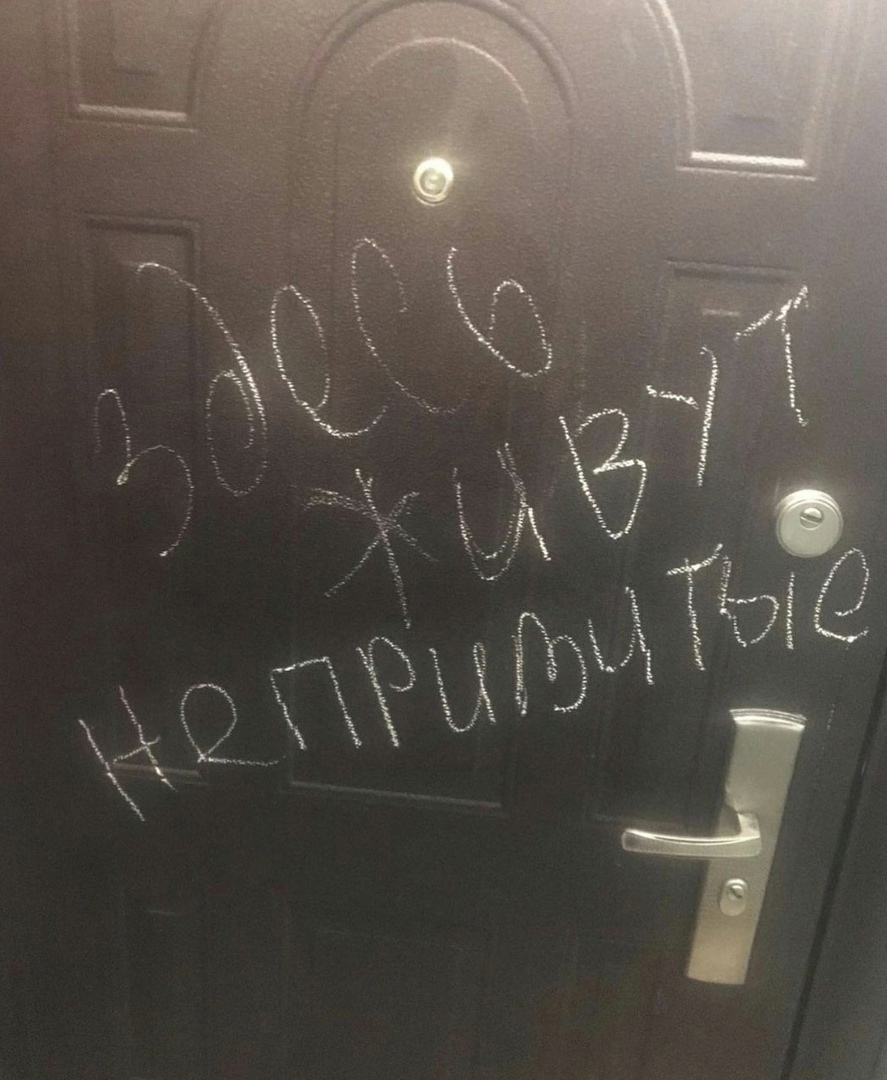 здесь
живут
непривитые